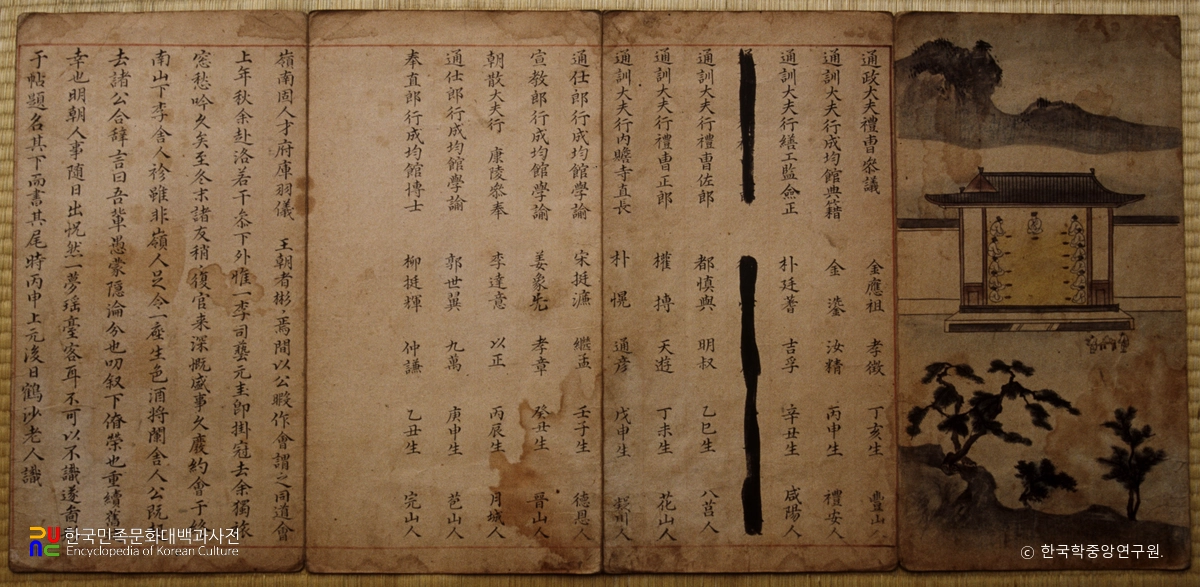 通政大夫禮曹參議 金應祖 孝徵 丁亥生 豊山
通訓大夫行成均館典籍 金鍌 汝精 丙申生 禮安人
通訓大夫行繕工監僉正 朴廷蓍 吉孚 辛丑生 咸陽人
通訓大夫行禮曹佐郎 都愼與 明叔 乙巳生 八莒人
通訓大夫行禮曹正郎 權搏 天遊 丁未生 花山人
通訓大夫行內贍寺直長 朴愰 通彦 戊申生
通仕郎行成均館學諭 宋挺濂 繼孟 壬子生 德恩人
宣敎郎行成均館學諭 姜象先 孝章 癸丑生 晉山人
朝散大夫行 康陵參奉 李達意 以正 丙辰生 月城人
通仕郎行成均館學諭 郭世翼 九萬 庚申生 苞山人
奉直郎行成均館博士 柳挺輝 仲謙 乙丑生 完山人
嶺南固人才府庫羽儀 王朝者彬彬焉間以公暇作會謂之同道會
上年秋余赴洛若干叅下外惟一李司藝元圭卽掛冠去余獨依
窓愁吟久矣至冬末諸友稍復官来深慨盛事久廢約會于終
南山下李舍人袗雖非嶺人足令一座生色酒將闌舍人公旣
去諸公合辞言曰吾輩愚蒙隠淪分也叨叙下僚榮也重續舊
幸也明朝人事随日出怳然一夢瑤臺客耳不可以不識遂
于帖題名其下而書其尾時丙申上元後日鶴沙老人識
한국민족문화대백과사전
Encyclopedia of Korean Culture
© 한국학중앙연구원.